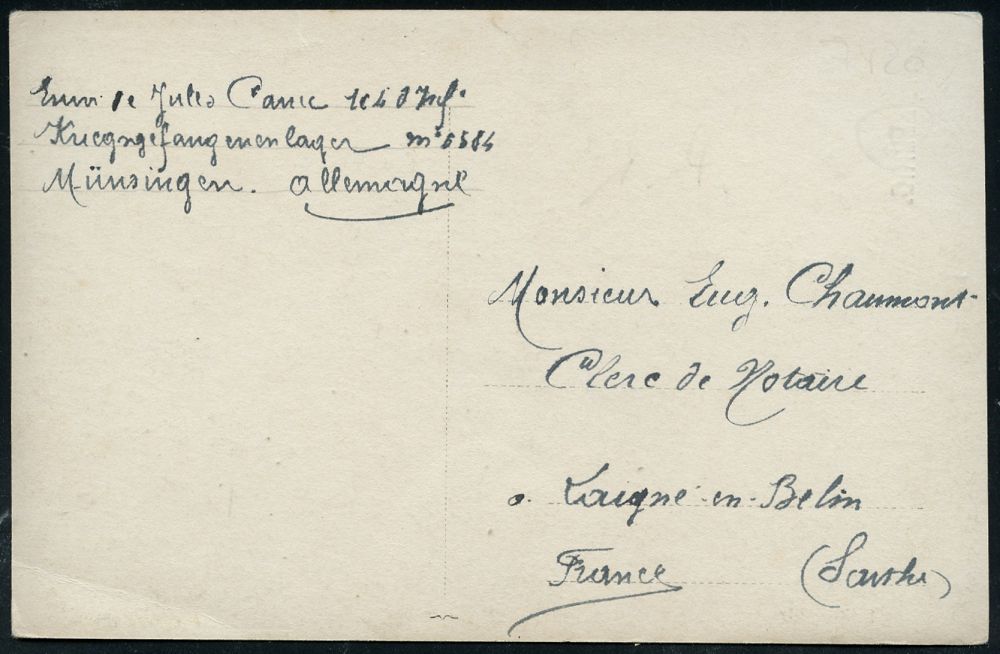 Envoi de Jules Canu 104 d'Inf.
Kriegsgefangenenlager
Münsingen. Allemagne
Monsieur Eug. Chaumont
Clerc de Notaire
a Laigné-en-Belin
France (Sarthe)